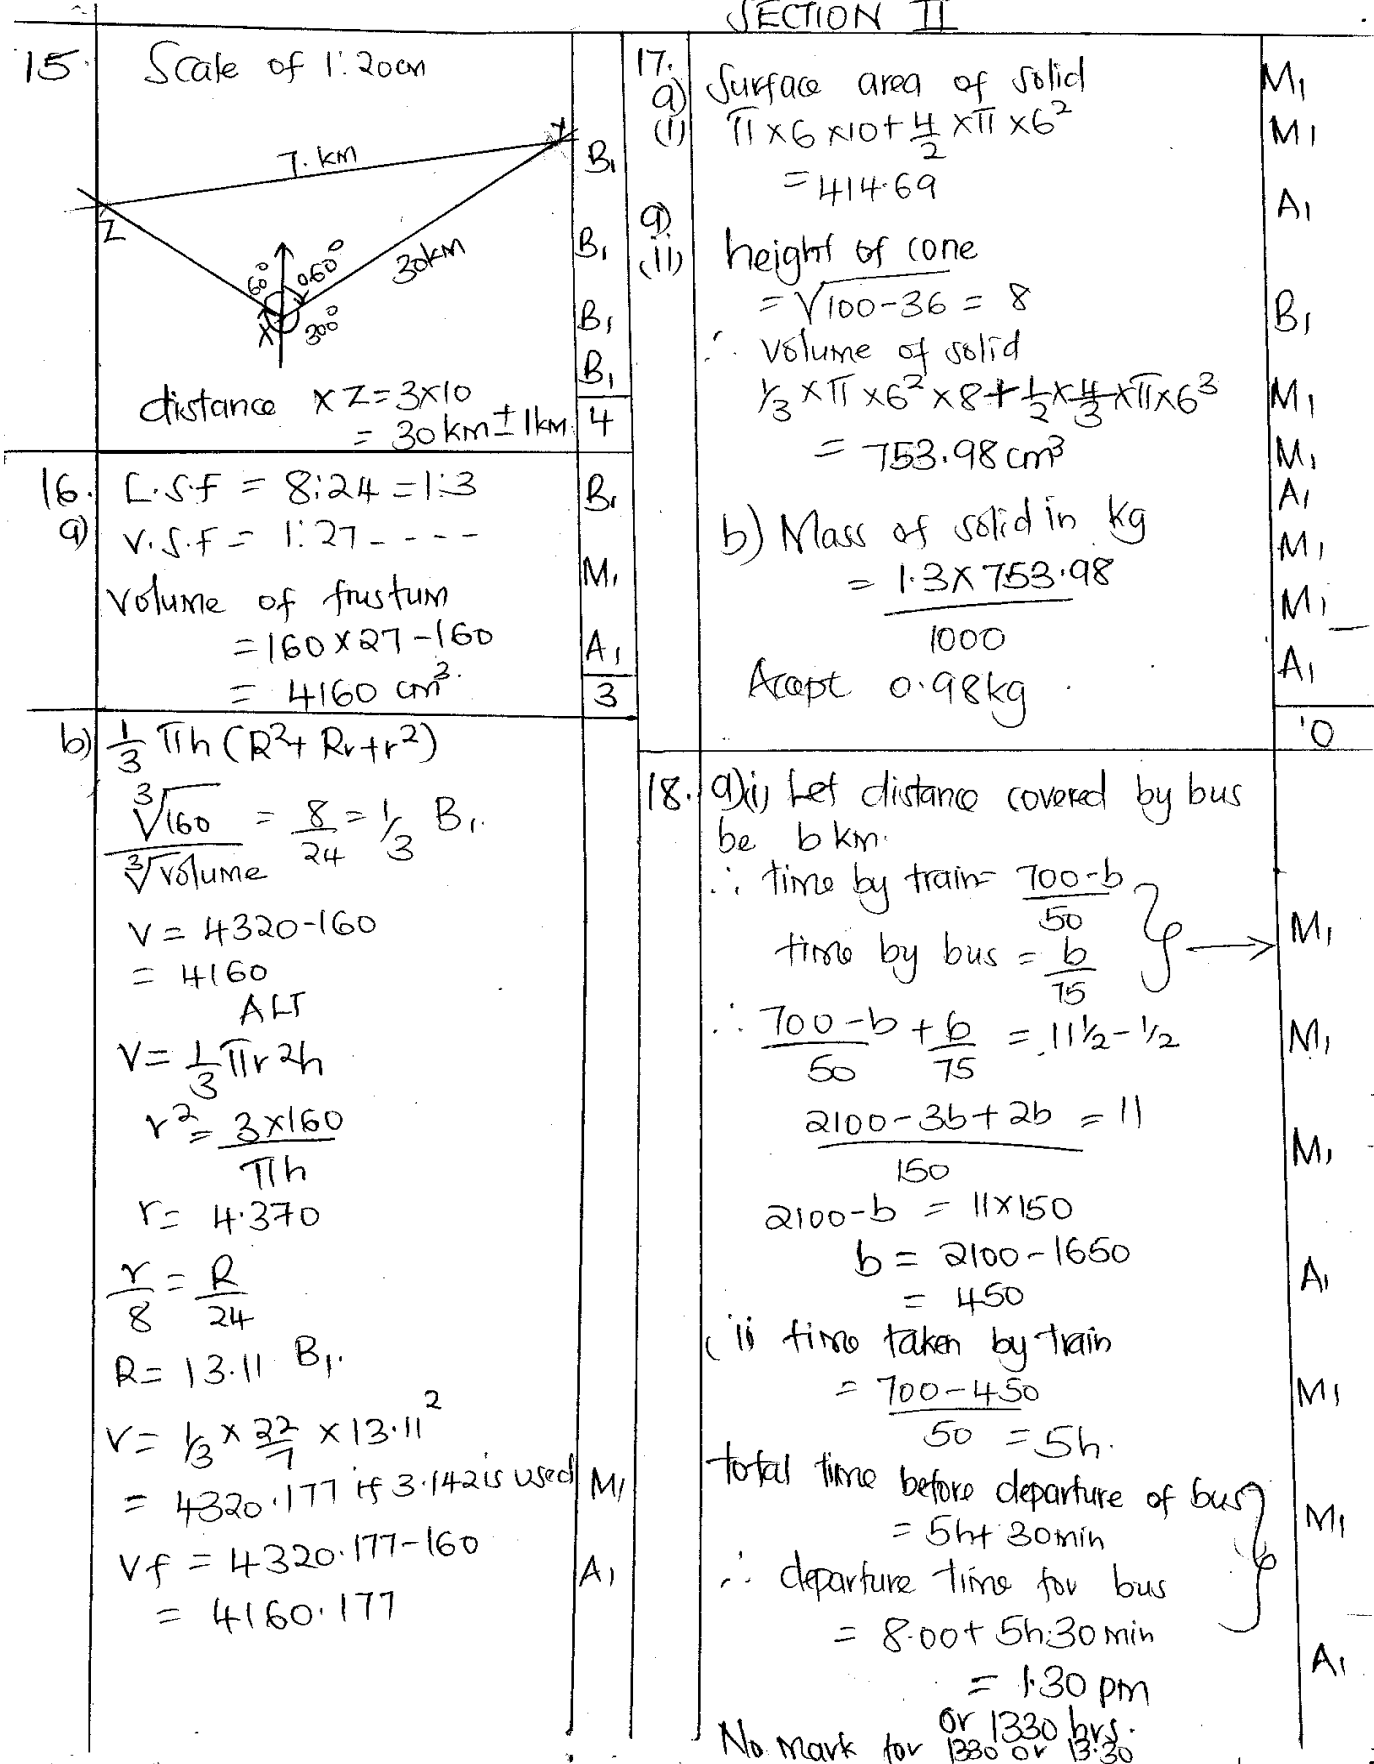 SECTION II
15.
Scale of 1:20cm
7. km
Y
Z
30km
60°
060°
X
300°
distance XZ = 3×10
= 30km ± 1km.
B1
B1
B1
B1
4
16.
a)
L.S.f = 8:24 = 1:3
V.S.F = 1:27 - - - -
Volume of frustum
= 160 × 27 - 160
= 4160 cm³.
B1
M1
A1
3
b) 1/3 πh (R²+ Rr + r²)
∛160 / ∛volume = 8/24 = 1/3 B1.
V = 4320 - 160
= 4160
ALT
V = 1/3 πr2h
r² = 3×160 / πh
r = 4.370
r/8 = R/24
R = 13.11 B1.
V = 1/3 × 22/7 × 13.11²
= 4320.177 if 3.142 is used M1
Vf = 4320.177 - 160
= 4160.177
A1
17.
a)
(i)
Surface area of solid M1
π × 6 × 10 + 4/2 × π × 6² M1
= 414.69 A1
a)
(ii) height of cone
= √100-36 = 8 B1
∴ volume of solid
1/3 × π × 6² × 8 + 1/2 × 4/3 × π × 6³ M1
= 753.98 cm³ M1
A1
b) Mass of solid in kg M1
= 1.3 × 753.98 / 1000 M1
Accept 0.98kg . A1
10
18. a)(i) Let distance covered by bus
be b km.
∴ time by train = 700-b / 50
time by bus = b/75 → M1
∴ 700-b / 50 + b/75 = 11½ - ½ M1
2100 - 3b + 2b / 150 = 11 M1
2100 - b = 11×150
b = 2100 - 1650
= 450 A1
(ii time taken by train
= 700-450 / 50 = 5h. M1
total time before departure of bus
= 5h + 30min M1
∴ departure time for bus
= 8.00 + 5h:30min
= 1.30 pm A1
or 1330 hrs.
No mark for 1330 or 13.30